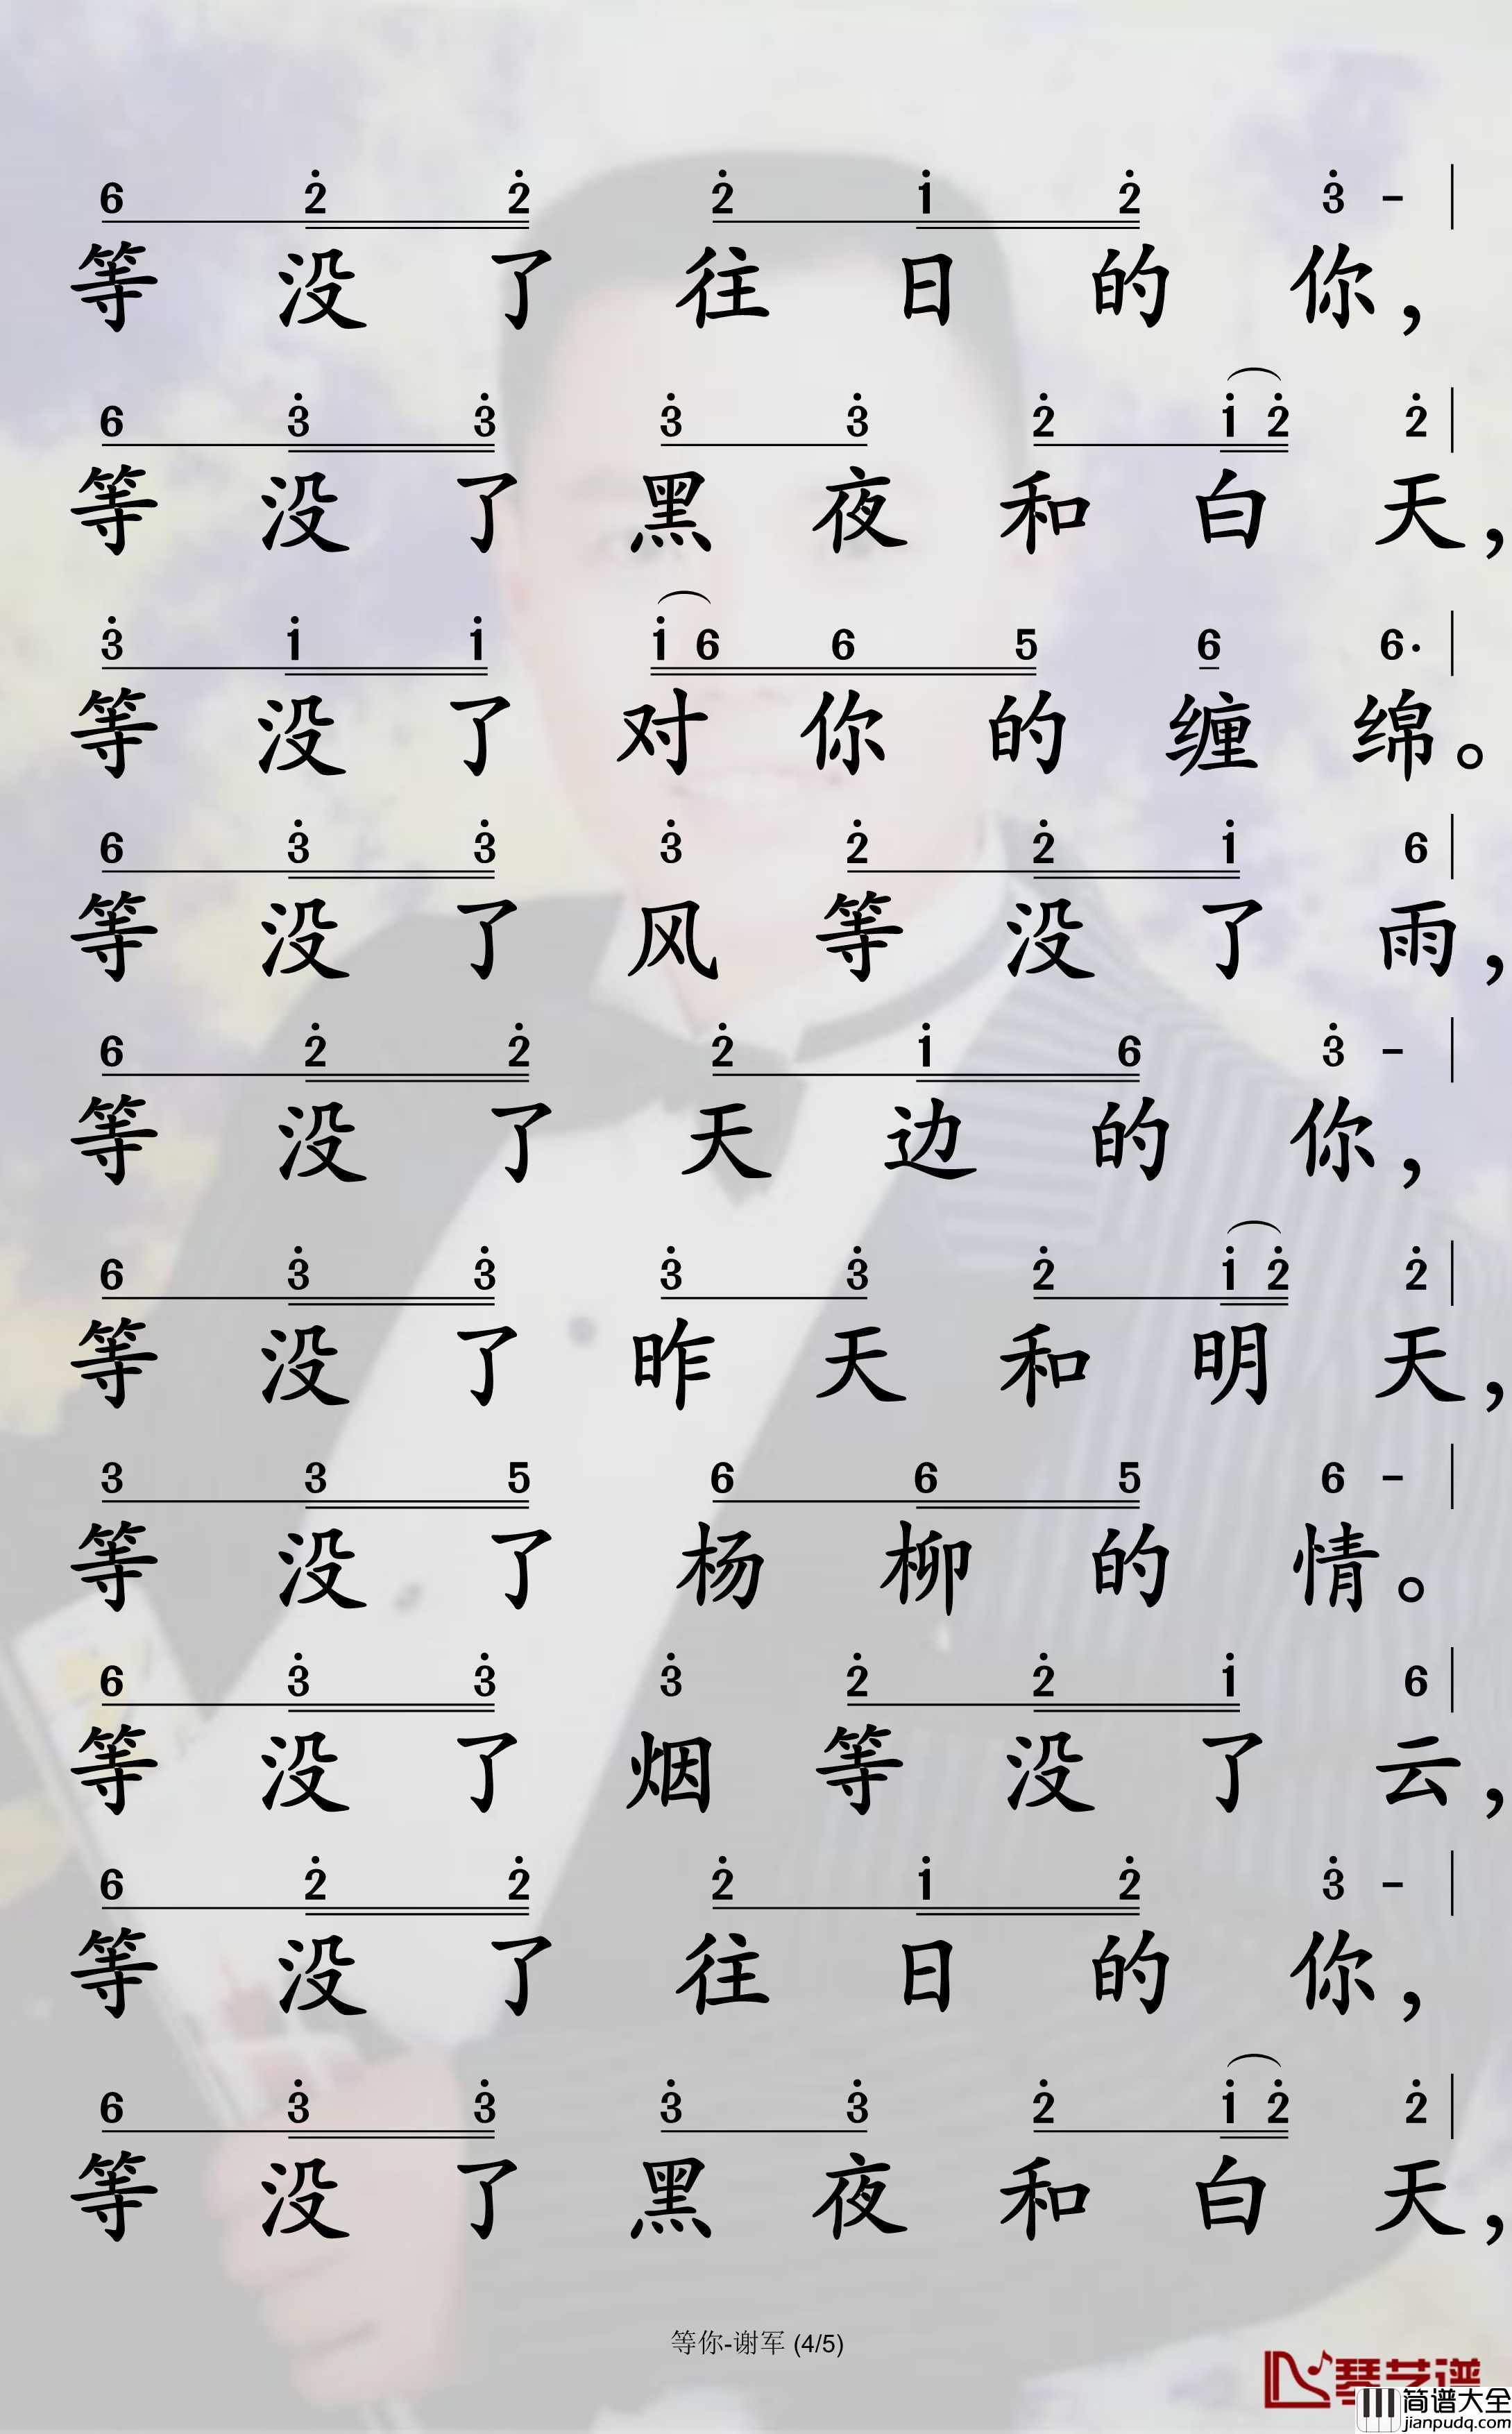 6 2̇ 2̇ 2̇ 1̇ 2̇ 3̇ - |
等 没 了 往 日 的 你，
6 3̇ 3̇ 3̇ 3̇ 2̇ 1̇ 2̇ 2̇ |
等 没 了 黑 夜 和 白 天，
3̇ 1̇ 1̇ 1̇ 6 6 5 6 6· |
等 没 了 对 你 的 缠 绵。
6 3̇ 3̇ 3̇ 2̇ 2̇ 1̇ 6 |
等 没 了 风 等 没 了 雨，
6 2̇ 2̇ 2̇ 1̇ 6 3̇ - |
等 没 了 天 边 的 你，
6 3̇ 3̇ 3̇ 3̇ 2̇ 1̇ 2̇ 2̇ |
等 没 了 昨 天 和 明 天，
3 3 5 6 6 5 6 - |
等 没 了 杨 柳 的 情。
6 3̇ 3̇ 3̇ 2̇ 2̇ 1̇ 6 |
等 没 了 烟 等 没 了 云，
6 2̇ 2̇ 2̇ 1̇ 2̇ 3̇ - |
等 没 了 往 日 的 你，
6 3̇ 3̇ 3̇ 3̇ 2̇ 1̇ 2̇ 2̇ |
等 没 了 黑 夜 和 白 天，
等你-谢军 (4/5)
琴艺谱
简谱大全
jianpudq.com